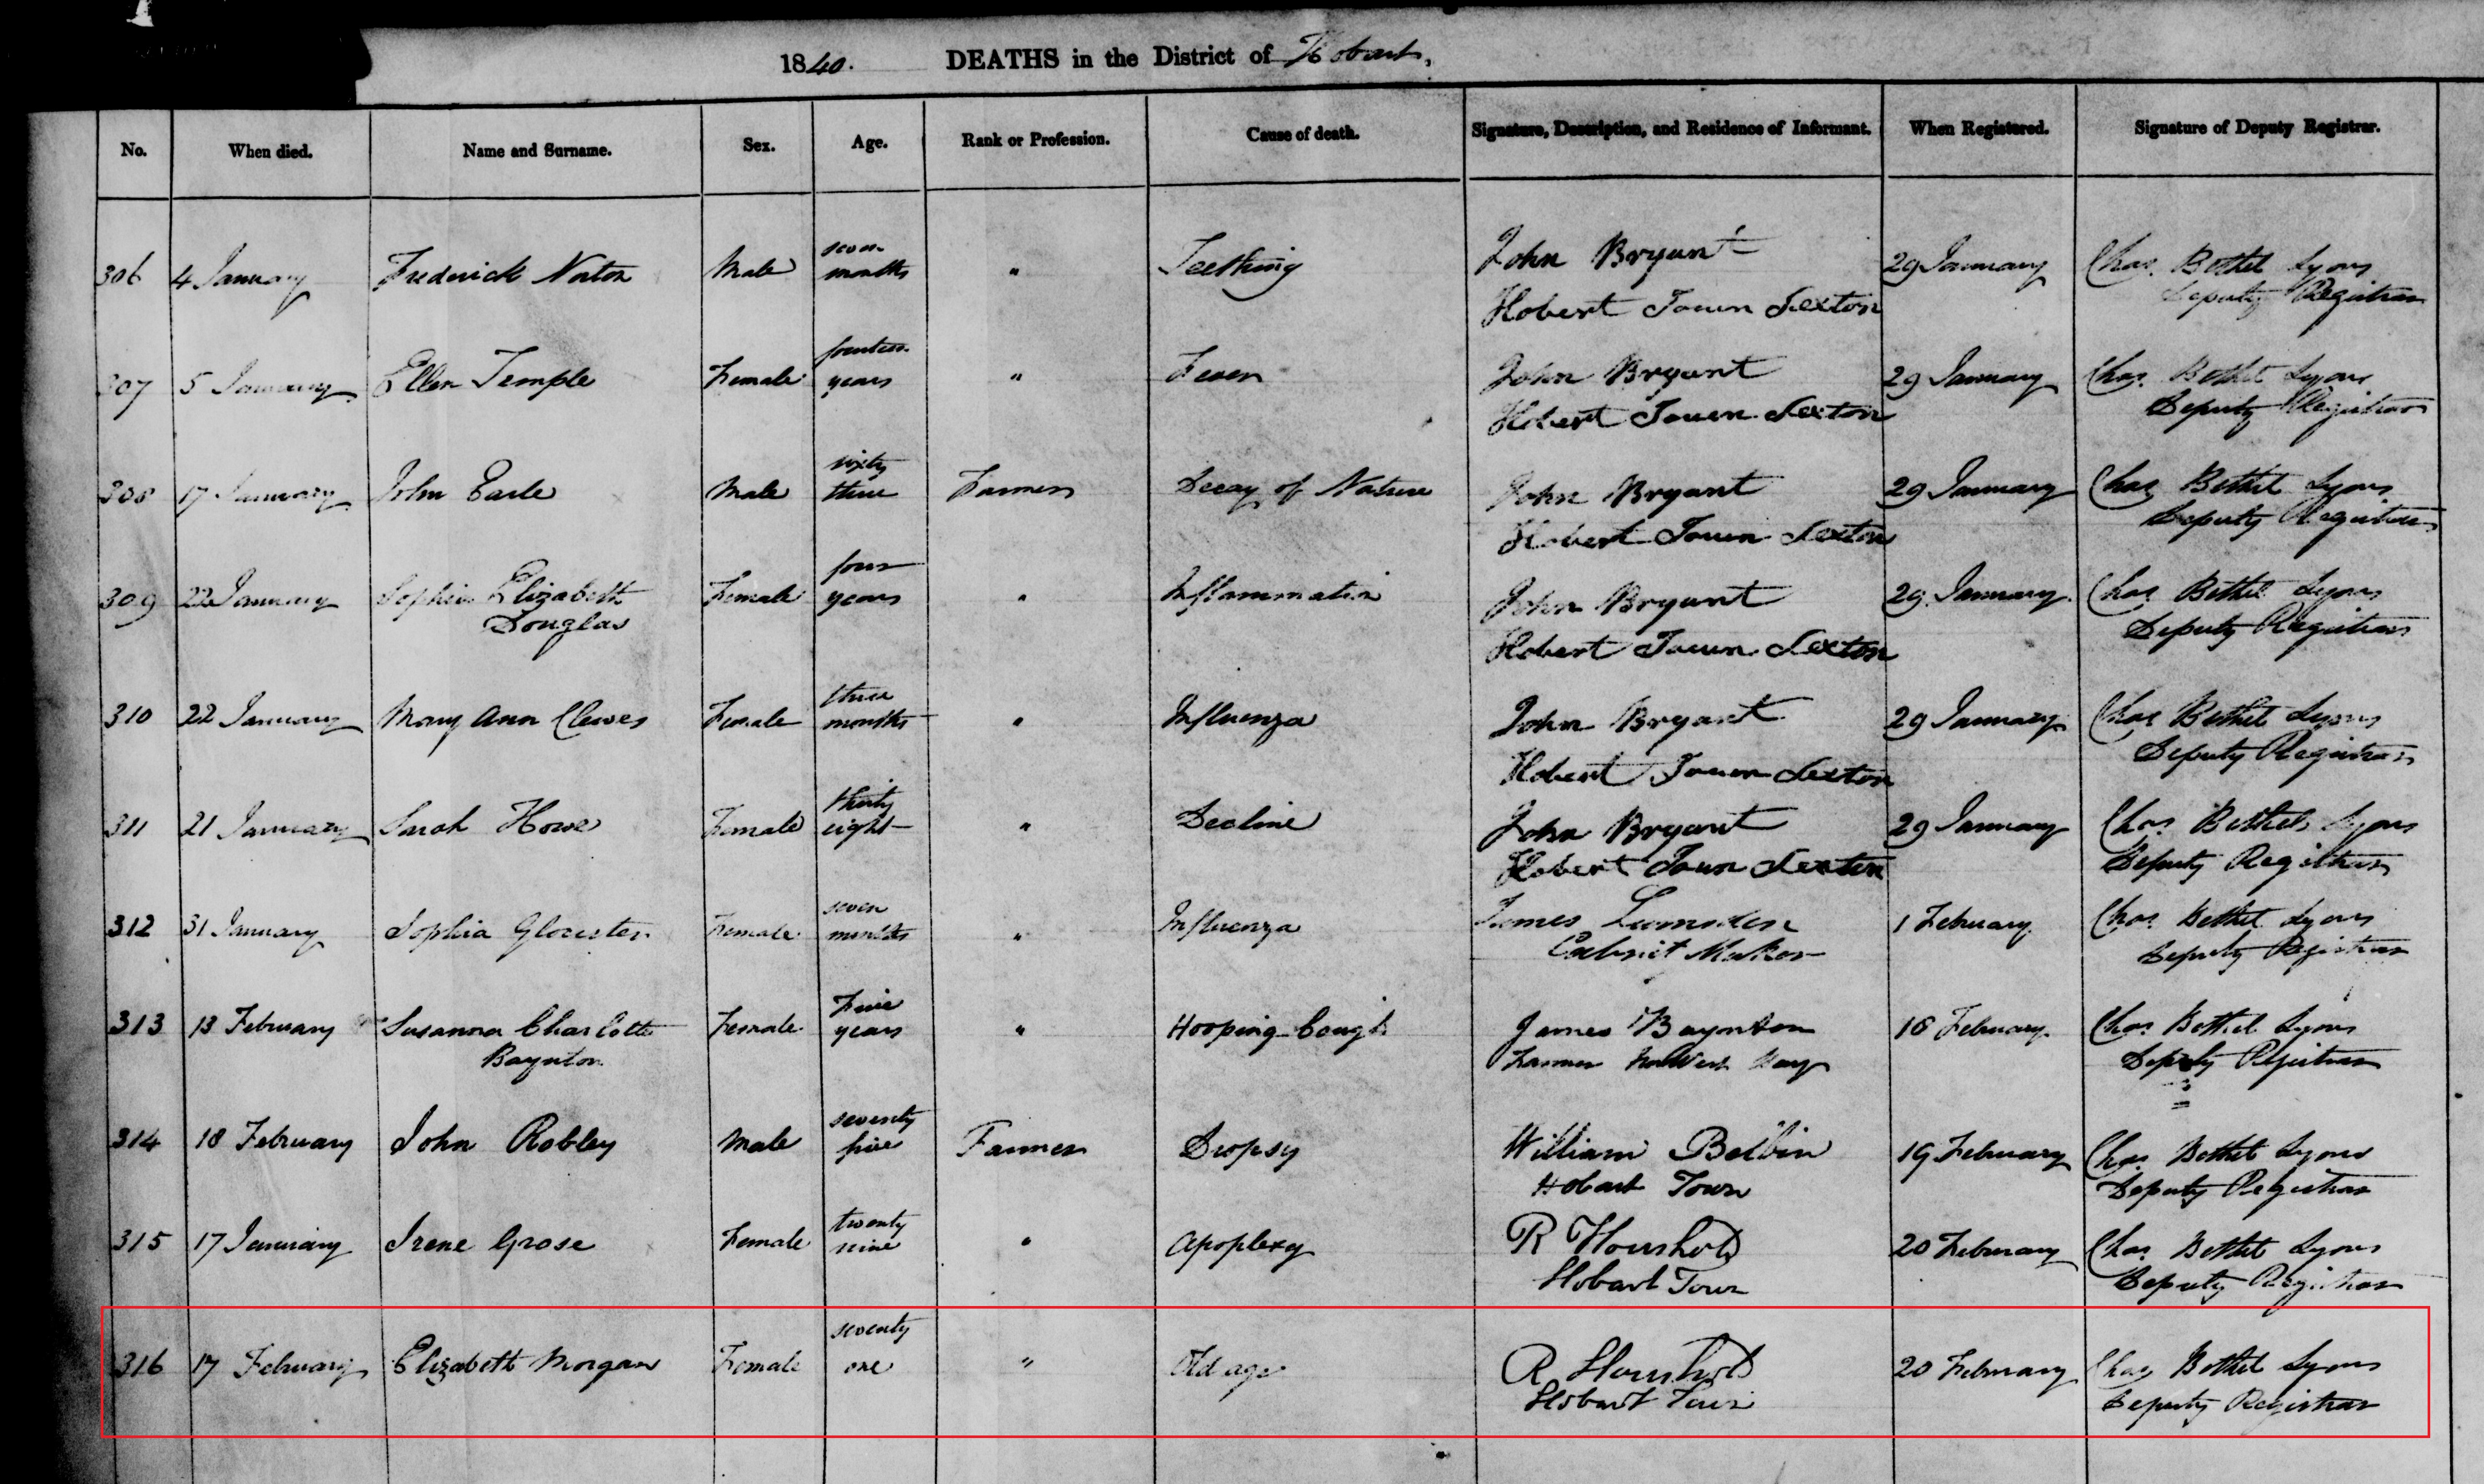 1840. DEATHS in the District of Hobart.
No. When died. Name and Surname. Sex. Age. Rank or Profession. Cause of death. Signature, Description, and Residence of Informant. When Registered. Signature of Deputy Registrar.
seven
306 4 January Frederick Norton Male months " Teething John Bryant 29 January Chas. Bethel Lyons
Hobert Town Sexton Deputy Registrar
fourteen
307 5 January Ellen Temple Female years " Fever John Bryant 29 January Chas. Bethel Lyons
Hobert Town Sexton Deputy Registrar
sixty
308 17 January John Earle Male three Farmer Decay of Nature John Bryant 29 January Chas. Bethel Lyons
Hobert Town Sexton Deputy Registrar
four
309 22 January Sophia Elizabeth Female years " Inflammation John Bryant 29 January Chas. Bethel Lyons
Douglas Hobert Town Sexton Deputy Registrar
three
310 22 January Mary Ann Clewes Female months " Influenza John Bryant 29 January Chas. Bethel Lyons
Hobert Town Sexton Deputy Registrar
thirty
311 21 January Sarah Howe Female eight " Decline John Bryant 29 January Chas. Bethel Lyons
Hobert Town Sexton Deputy Registrar
seven
312 31 January Sophia Glocester Female months " Influenza James Lumsden 1 February Chas. Bethel Lyons
Cabnit Maker Deputy Registrar
Five
313 13 February Susanna Charlotte Female years " Hooping Cough James Baynton 18 February Chas. Bethel Lyons
Baynton Farmer Deputy Registrar
seventy
314 18 February John Robley Male five Farmer Dropsy William Belbin 19 February Chas. Bethel Lyons
Hobart Town Deputy Registrar
twenty
315 17 January Irene Grose Female nine " Apoplexy R 20 February Chas. Bethel Lyons
Hobart Town Deputy Registrar
seventy
316 17 February Elizabeth Morgan Female one " Old age R 20 February Chas. Bethel Lyons
Hobart Town Deputy Registrar